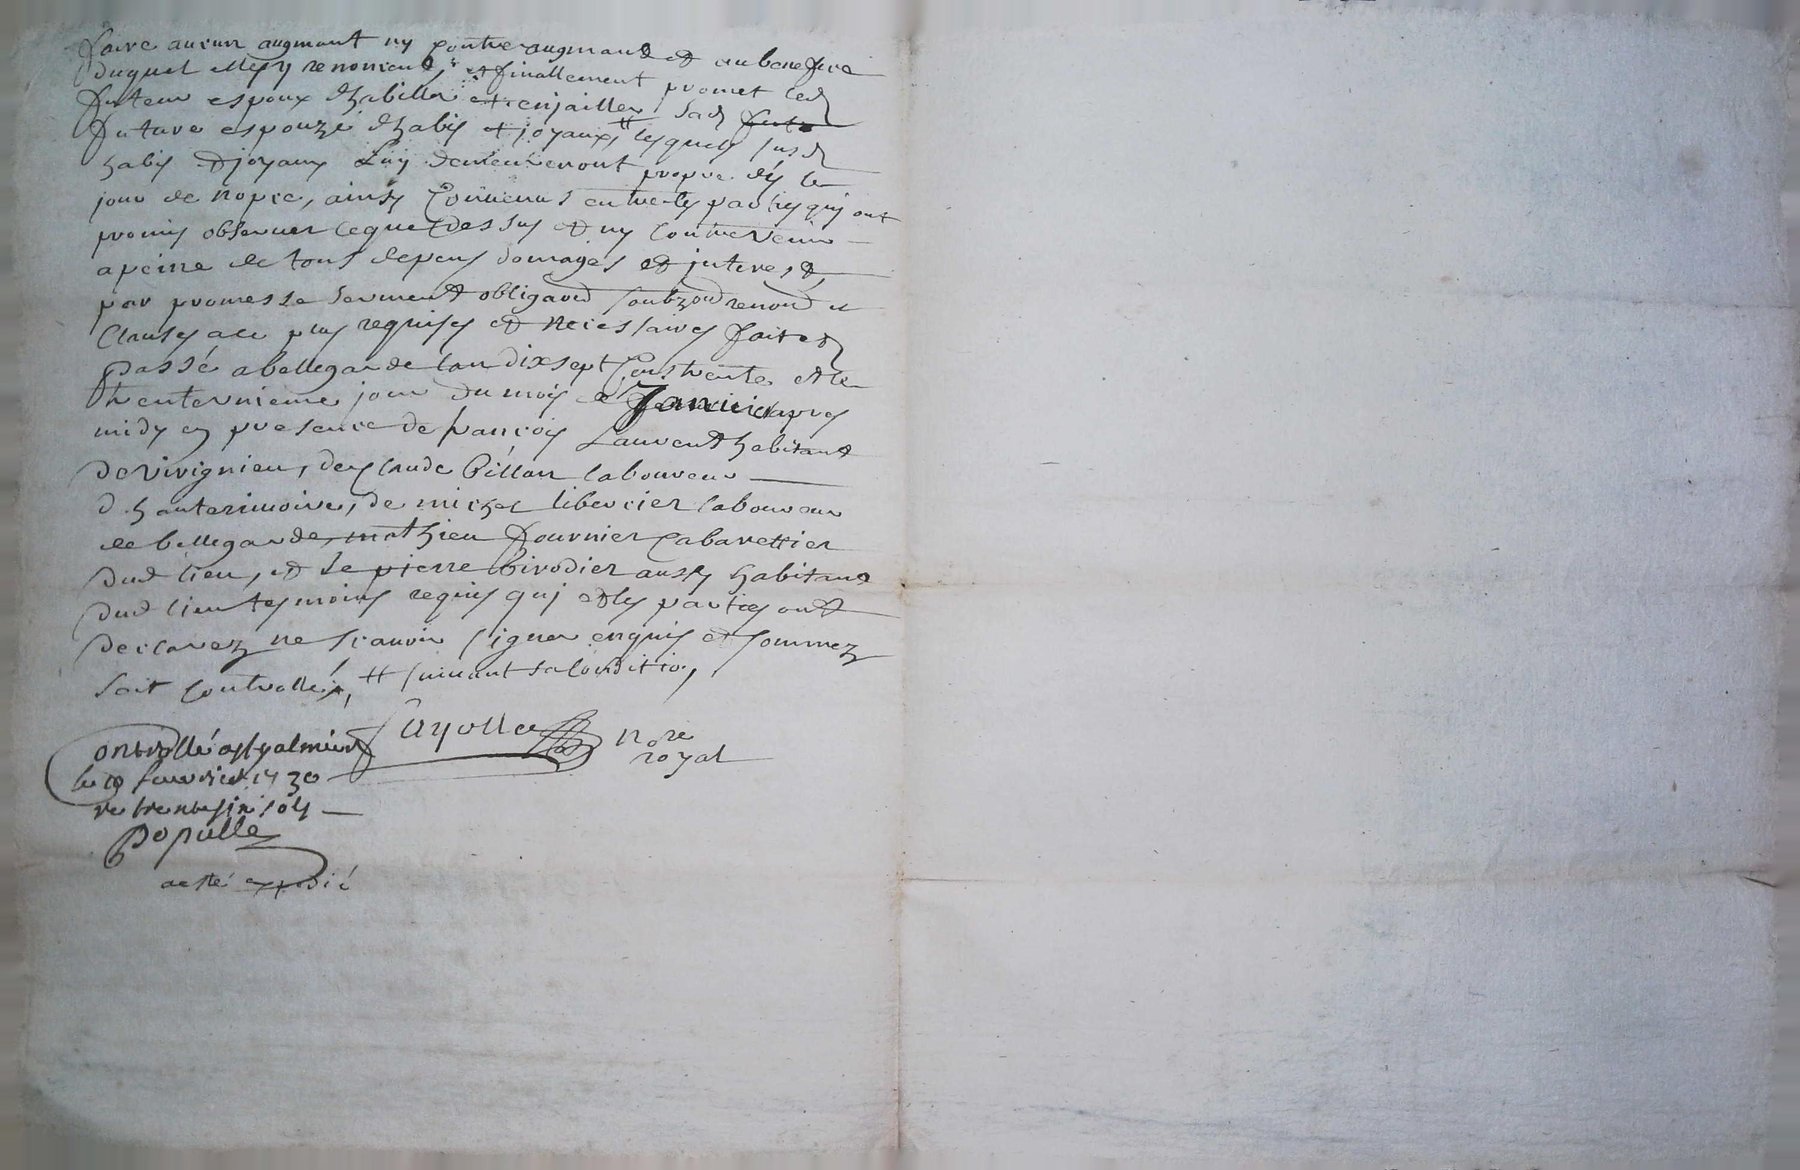 faire aucun augment ny contre augmant et au benefice
duquel elles y renoncent, et finallement promet led
futeur espoux dhabiller et enjailler sad futu
future espouze dhabis et joyaux, # lesquels susd
habis et joyaux luy demeureront propre dés le
jour de nopce, ainsy convenus entre les parties quy ont
promis observer ce que dessus et ny contrevenir
a peine de tous depens domages et interest,
par promesse serment obligaon soubzon renon et
clauses a ce plus requises et necessaires fait et
passé a bellegarde lan dix sept cens trente et le
trenteunieme jour du mois de Janvier apres
midy en presence de françois Laurent habitant
de vivignieu, de claude Pillon laboureur
d'hauterivoire, de michel libercier laboureur
de bellegarde, mathieu fournier cabarettier
dud lieu, et de pierre birodier aussy habitant
dud lieu tesmoins requis qui et les parties ont
declarez ne scavoir signer enquis et sommez
soit controllé, # suivant sa condition,
fayolle nore
royal
Controllé a St galmier
le fevrier 1730
re trente six sols
Populle
a esté expedié